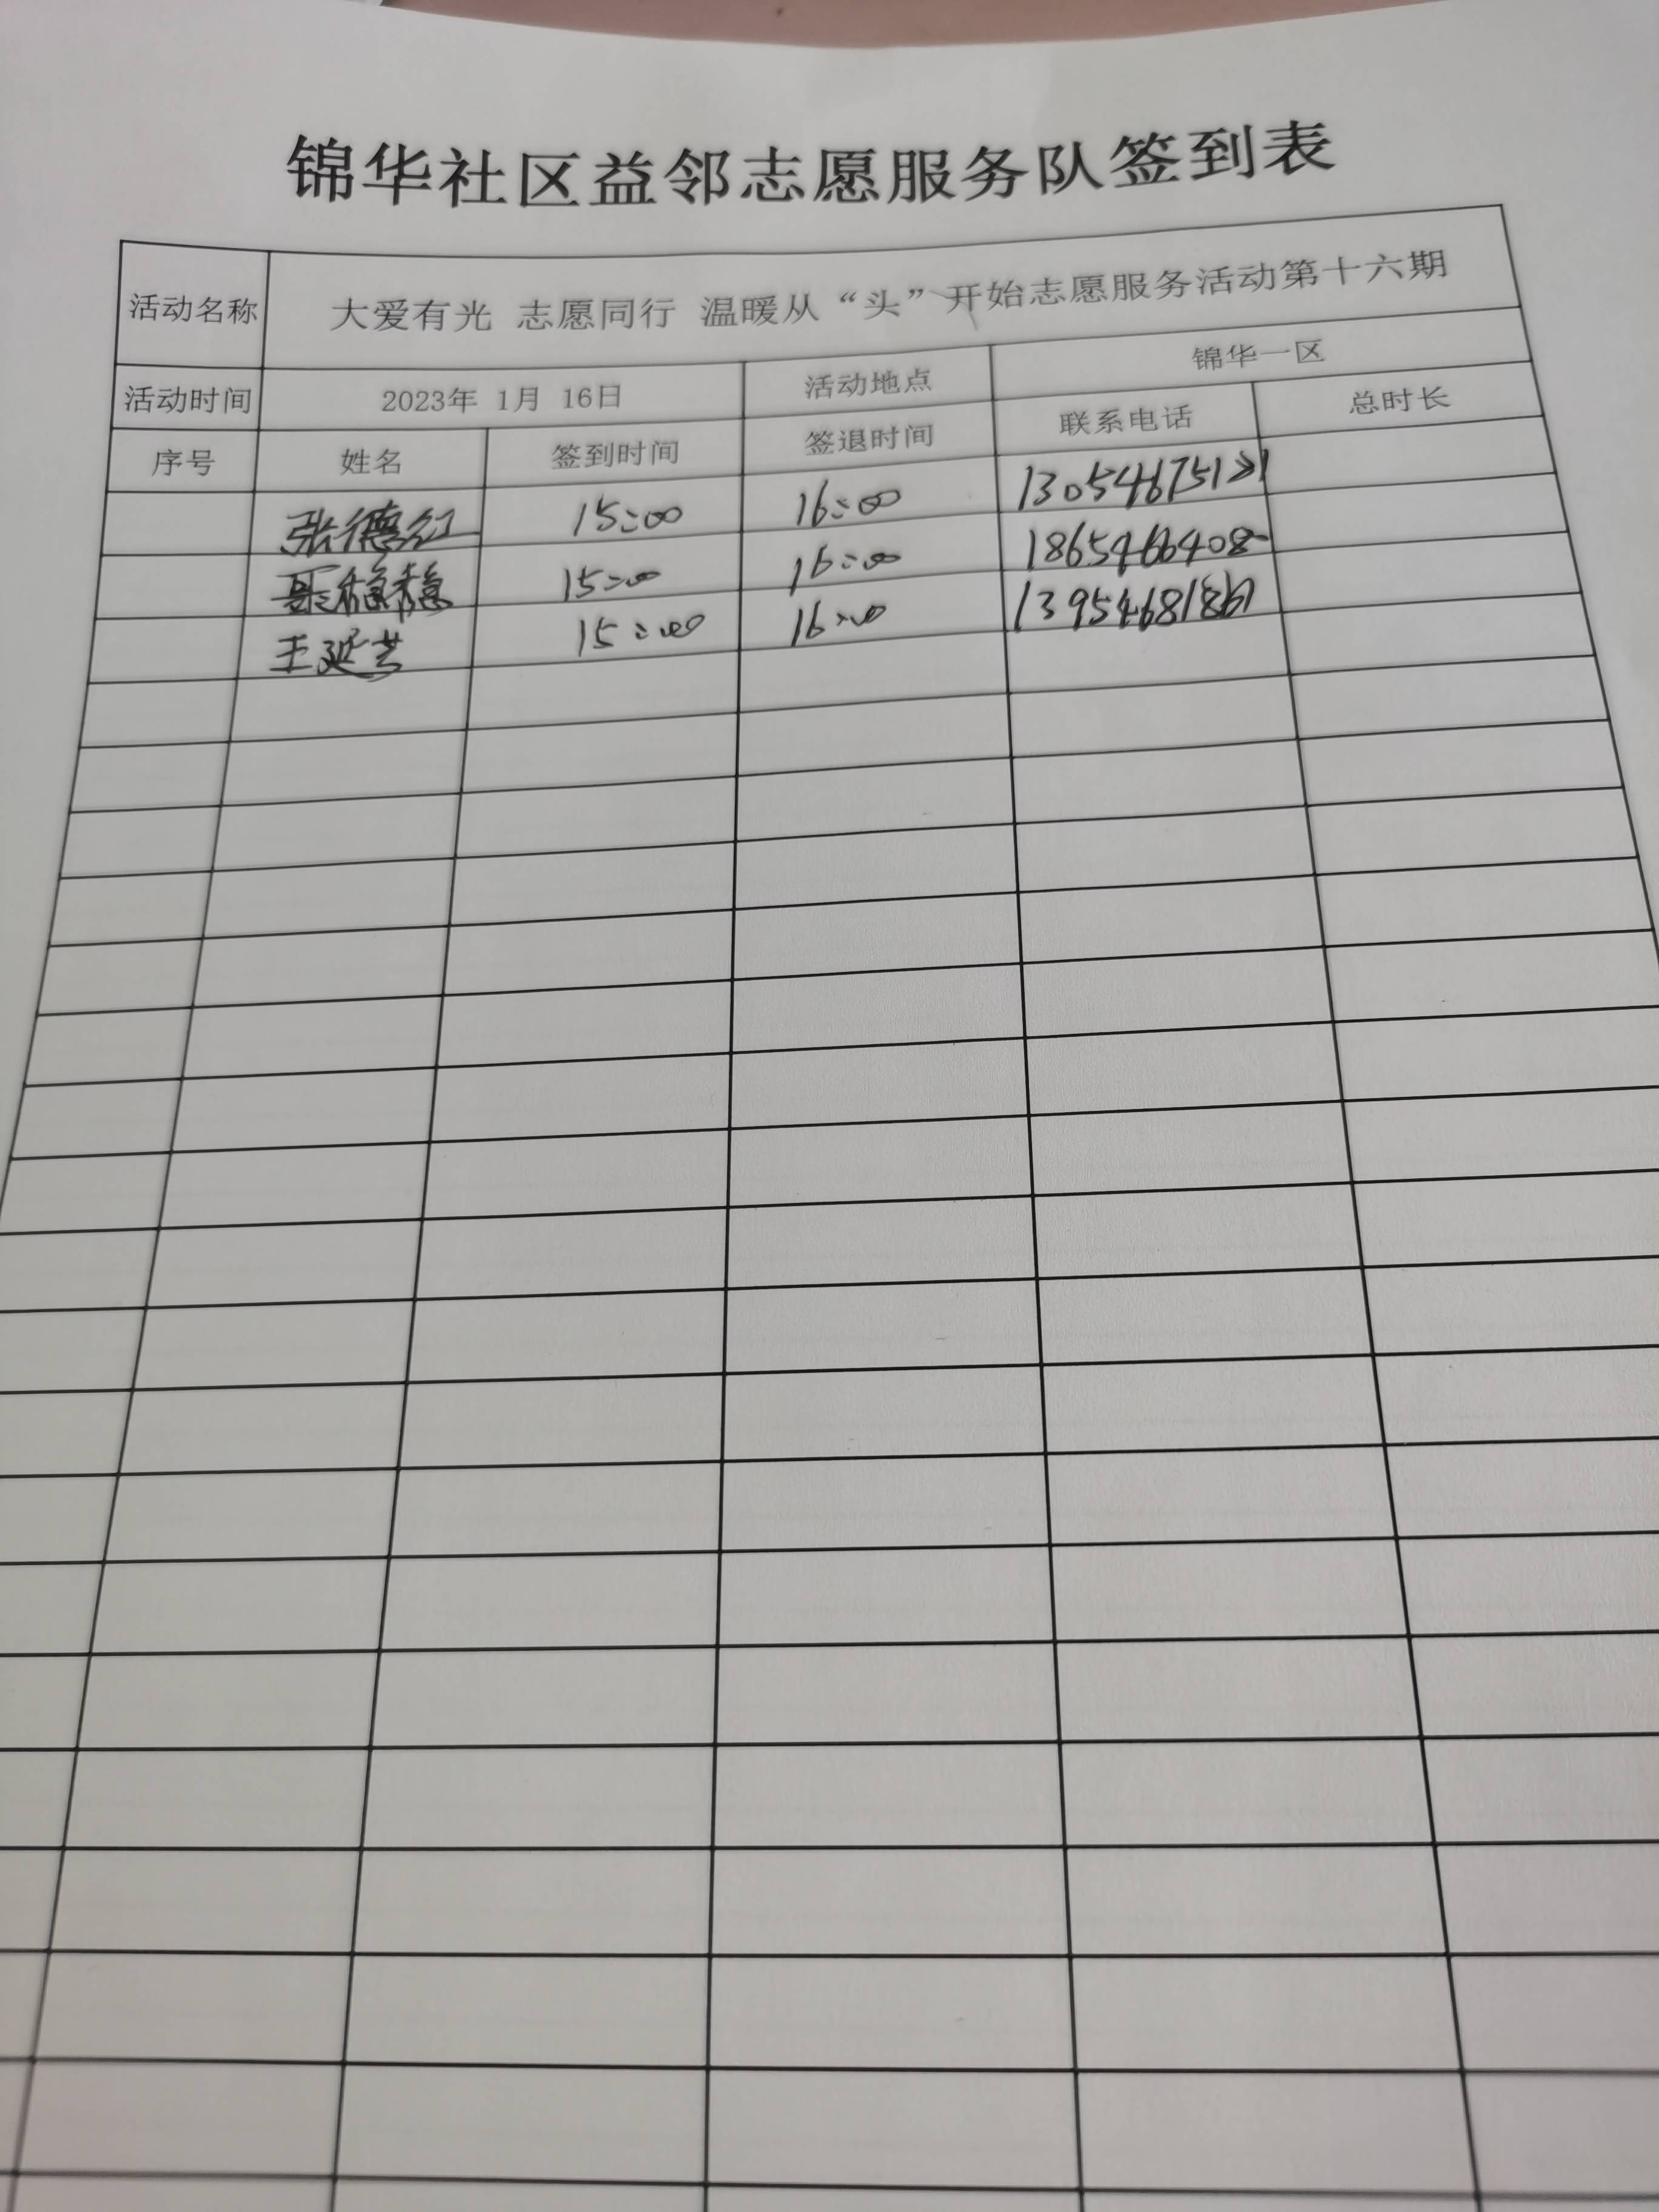 锦华社区益邻志愿服务队签到表
活动名称 大爱有光 志愿同行 温暖从“头”开始志愿服务活动第十六期
活动时间 2023年 1月 16日 活动地点 锦华一区
序号 姓名 签到时间 签退时间 联系电话 总时长
张德红 15:00 16:00
稳稳 15:00 16:00 18654664082
王延芸 15:00 16:00